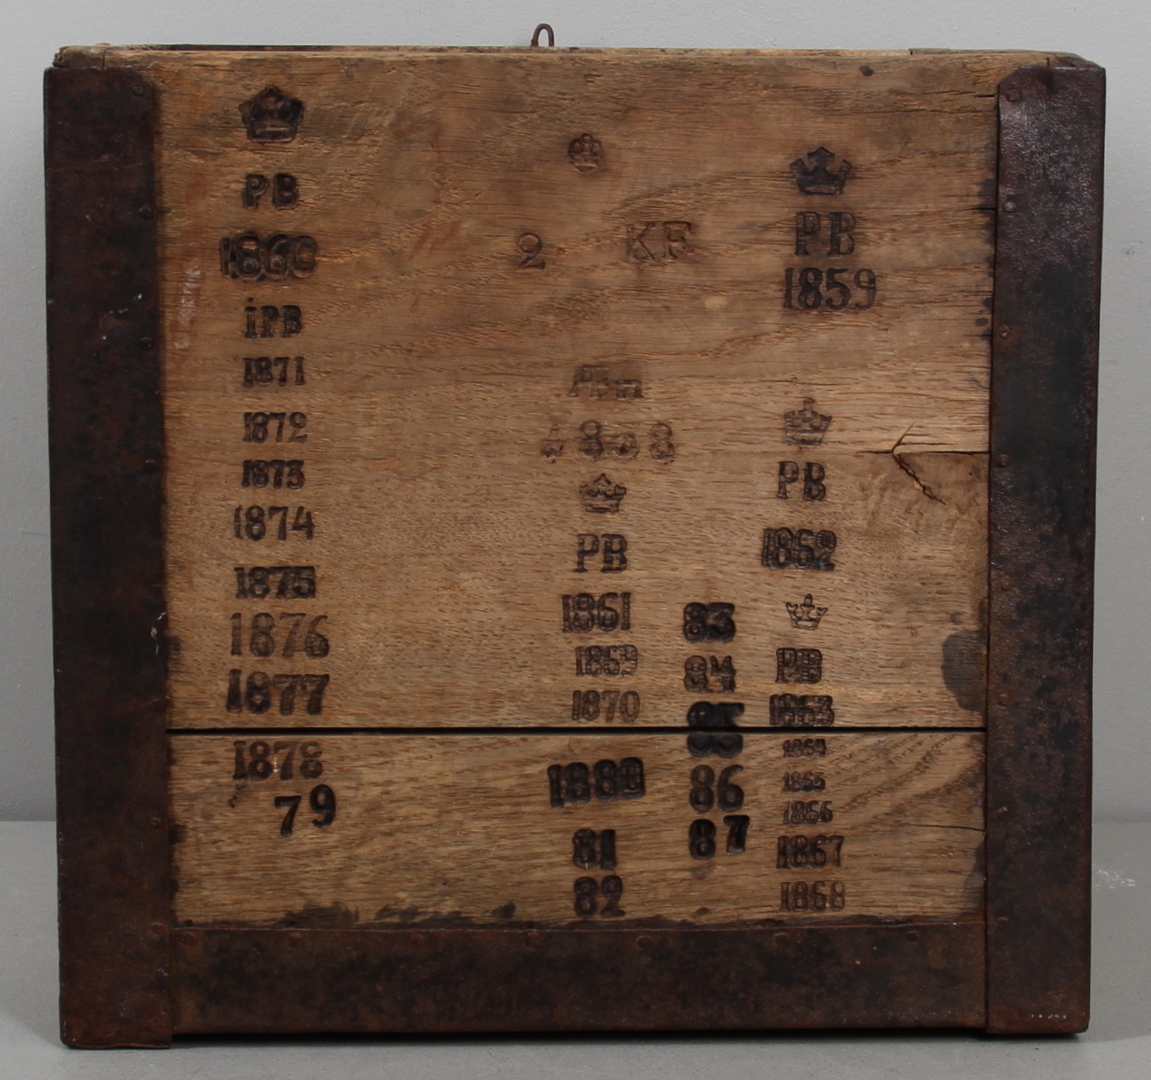 PB
1860
iPB
1871
1872
1873
1874
1875
1876
1877
1878
79
2 KF
1858
PB
1861
1869
1870
1880
81
82
83
84
85
86
87
PB
1859
PB
1862
PB
1863
1864
1865
1866
1867
1868